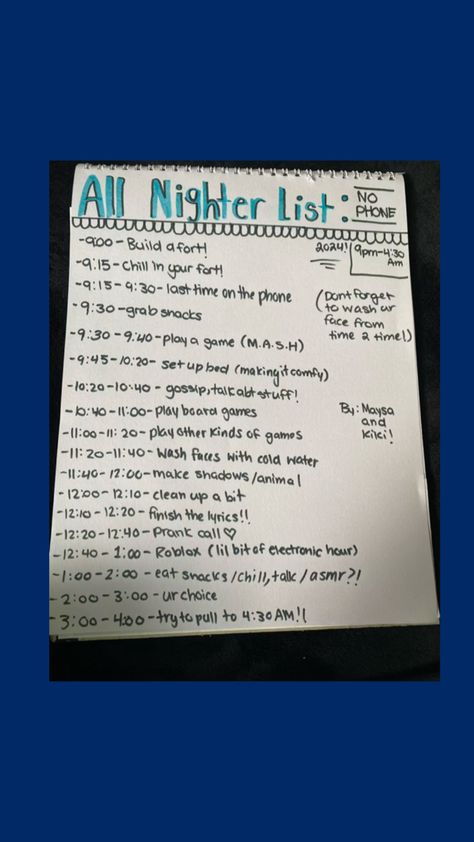 All Nighter List: NO PHONE
2024! 9pm-4:30 Am
-9:00- Build a fort!
-9:15- Chill in your fort!
-9:15-9:30- last time on the phone
(Dont forget to wash ur face from time 2 time!)
-9:30-grab snacks
-9:30-9:40-play a game (M.A.S.H)
-9:45-10:20- set up bed (making it comfy)
-10:20-10:40- gossip, talk abt stuff!
-10:40-11:00-play board games
By: Maysa and Kiki!
-11:00-11:20- play other kinds of games
-11:20-11:40- wash faces with cold water
-11:40-12:00- make shadows/animal
-12:00-12:10- clean up a bit
-12:10-12:20- finish the lyrics!!
-12:20-12:40- Prank call♡
-12:40-1:00- Roblox (lil bit of electronic hour)
-1:00-2:00- eat snacks/chill, talk/asmr?!
-2:00-3:00- ur choice
-3:00-4:00-try to pull to 4:30 AM!!